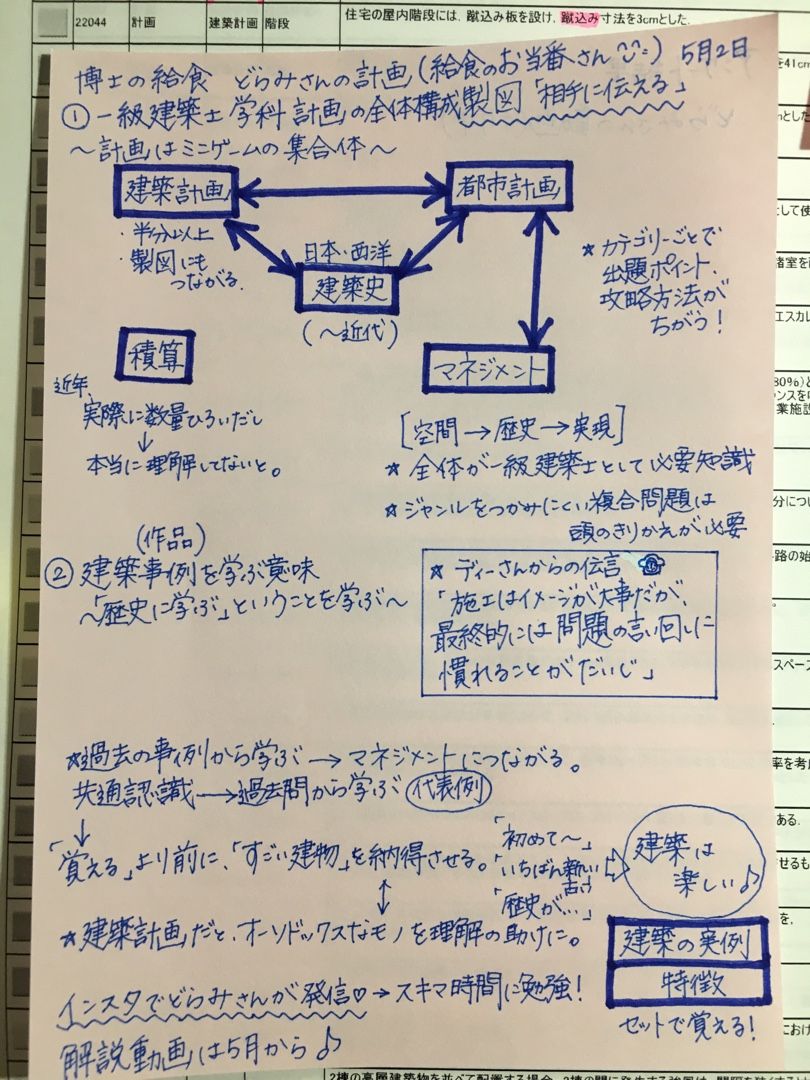 22044 計画 建築計画 階段 住宅の屋内階段には、蹴込み板を設け、蹴込み寸法を3cmとした.
博士の給食 どらみさんの計画(給食のお当番さん) 5月2日
① 一級建築士 学科 計画の全体構成 製図「相手に伝える」
～計画はミニゲームの集合体～
建築計画
都市計画
・半分以上
・製図にも
つながる.
日本・西洋
建築史
(～近代)
★カテゴリーごとで
出題ポイント、
攻略方法が
ちがう!
積算
マネジメント
近年、
実際に数量ひろいだし
↓
本当に理解してないと。
[空間→歴史→実現]
★全体が一級建築士として必要知識
★ジャンルをつかみにくい複合問題は
頭のきりかえが必要
(作品)
② 建築事例を学ぶ意味
～「歴史に学ぶ」ということを学ぶ～
★ディーさんからの伝言
「施工はイメージが大事だが、
最終的には問題の言い回しに
慣れることがだいじ」
★過去の事例から学ぶ→マネジメントにつながる。
共通認識→過去問から学ぶ 代表例
↓
「覚える」より前に、「すごい建物」を納得させる。
「初めて～」
「いちばん新しい
古い
「歴史が…」
建築は
楽しい♪
★建築計画だと、オーソドックスなモノを理解の助けに。
建築の実例
特徴
セットで覚える!
インスタでどらみさんが発信♡→スキマ時間に勉強!
解説動画は5月から♪